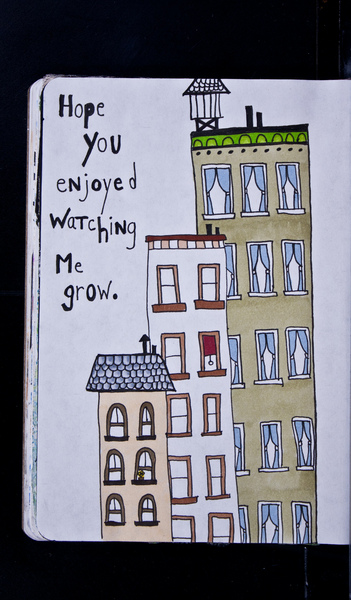 Hope
You
enjoyed
Watching
Me
grow.